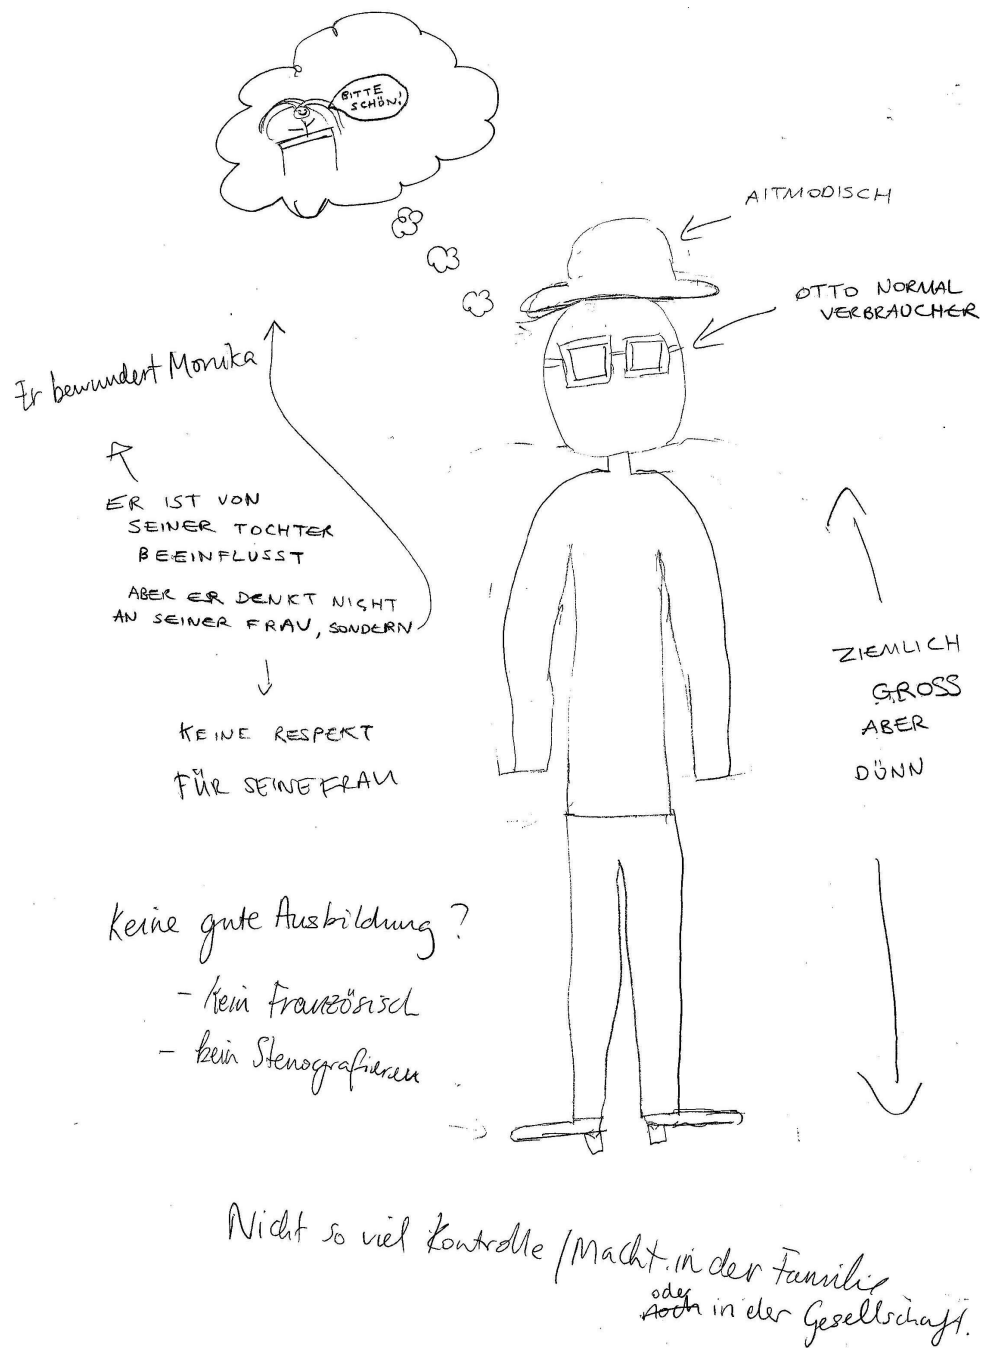 BITTE
SCHÖN!
AlTMODISCH
OTTO NORMAL
VERBRAUCHER
Er bewundert Monika
ER IST VON
SEINER TOCHTER
BEEINFLUSST
ABER ER DENKT NICHT
AN SEINER FRAU, SONDERN
KEINE RESPEKT
FÜR SEINE FRAU
ZIEMLICH
GROSS
ABER
DÜNN
Keine gute Ausbildung?
- kein Französisch
- kein Stenografieren
Nicht so viel Kontrolle / Macht in der Familie
oder
noch in der Gesellschaft.